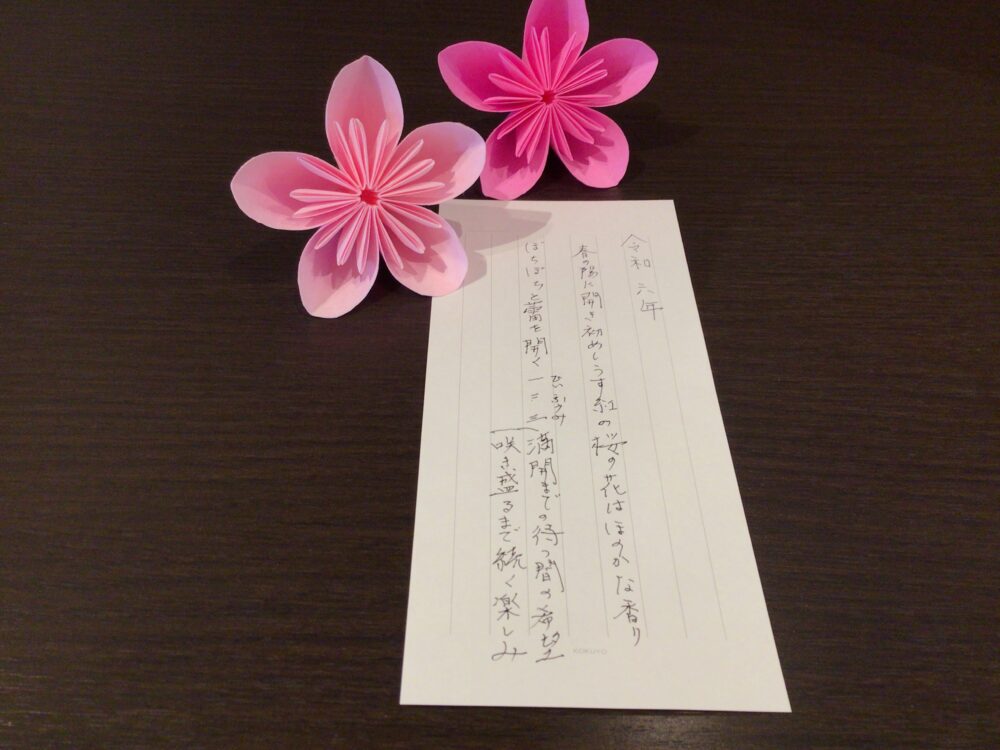 令和 六年
春の陽に開き初めしうす紅の桜の花はほのかな香り
ひいふうみ
ぽちぽちと蕾を開く一二三 満開までの待つ間の希望
咲き盛るまで続く楽しみ
KOKUYO